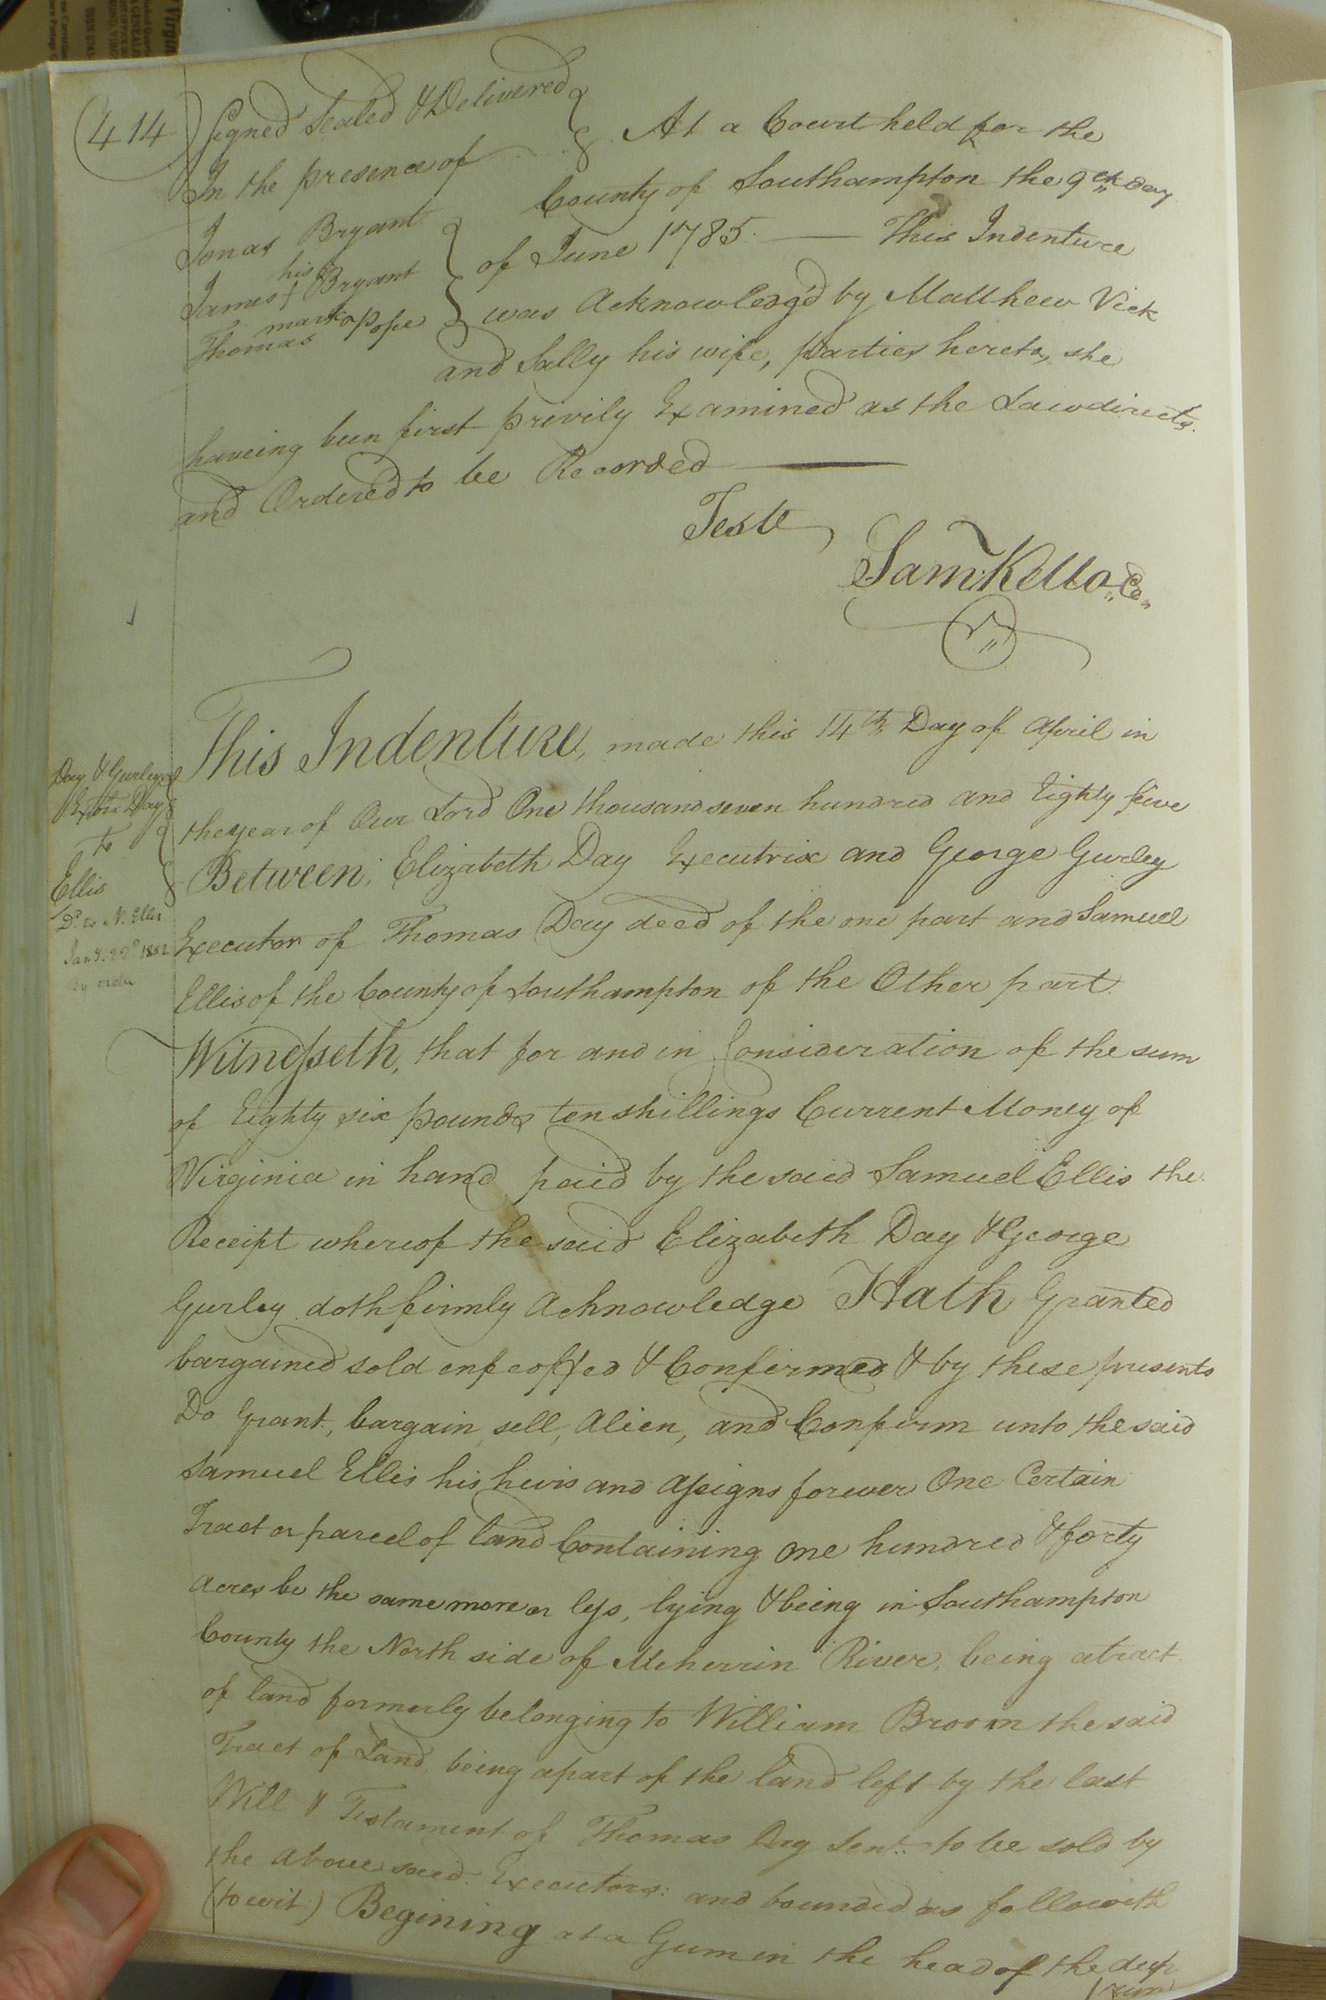 (414)
Signed Sealed & Delivered
In the presence of
Jonas Bryant
his
James + Bryant
mark
Thomas Pope
At a Court held for the
County of Southampton the 9th day
of June 1785 — This Indenture
was Acknowledg'd by Matthew Vick
and Sally his wife, parties hereto, she
haveing been first privily Examined as the Law directs.
and Ordered to be Recorded —
Teste
Sam Kello
Day & Gurley
Exors Day
To
Ellis
Dd to N. Ellis
By order
This Indenture, made this 14th Day of April in
the year of Our Lord One thousand seven hundred and Eighty five
Between Elizabeth Day Executrix and George Gurley
Executor of Thomas Day deed of the one part and Samuel
Ellis of the County of Southampton of the Other part.
Witnesseth, that for and in Consideration of the sum
of Eighty six pounds ten shillings Current Money of
Virginia in hand paid by the said Samuel Ellis the
Receipt whereof the said Elizabeth Day & George
Gurley doth firmly Acknowledge Hath Granted
bargained sold enfeoffed & Confirmed & by these presents
Do Grant, bargain, sell, Alien, and Confirm unto the said
Samuel Ellis his heirs and Assigns forever One Certain
Tract or parcel of land Containing one hundred & forty
Acres be the same more or less, lying & being in Southampton
County the North side of Meherrin River, being a tract
of land formerly belonging to William Broom the said
Tract of Land being a part of the land left by the last
Will & Testament of Thomas Day Senr. to be sold by
the above said Executors: and bounded as followeth
(to wit.) Begining at a Gum in the head of the deep